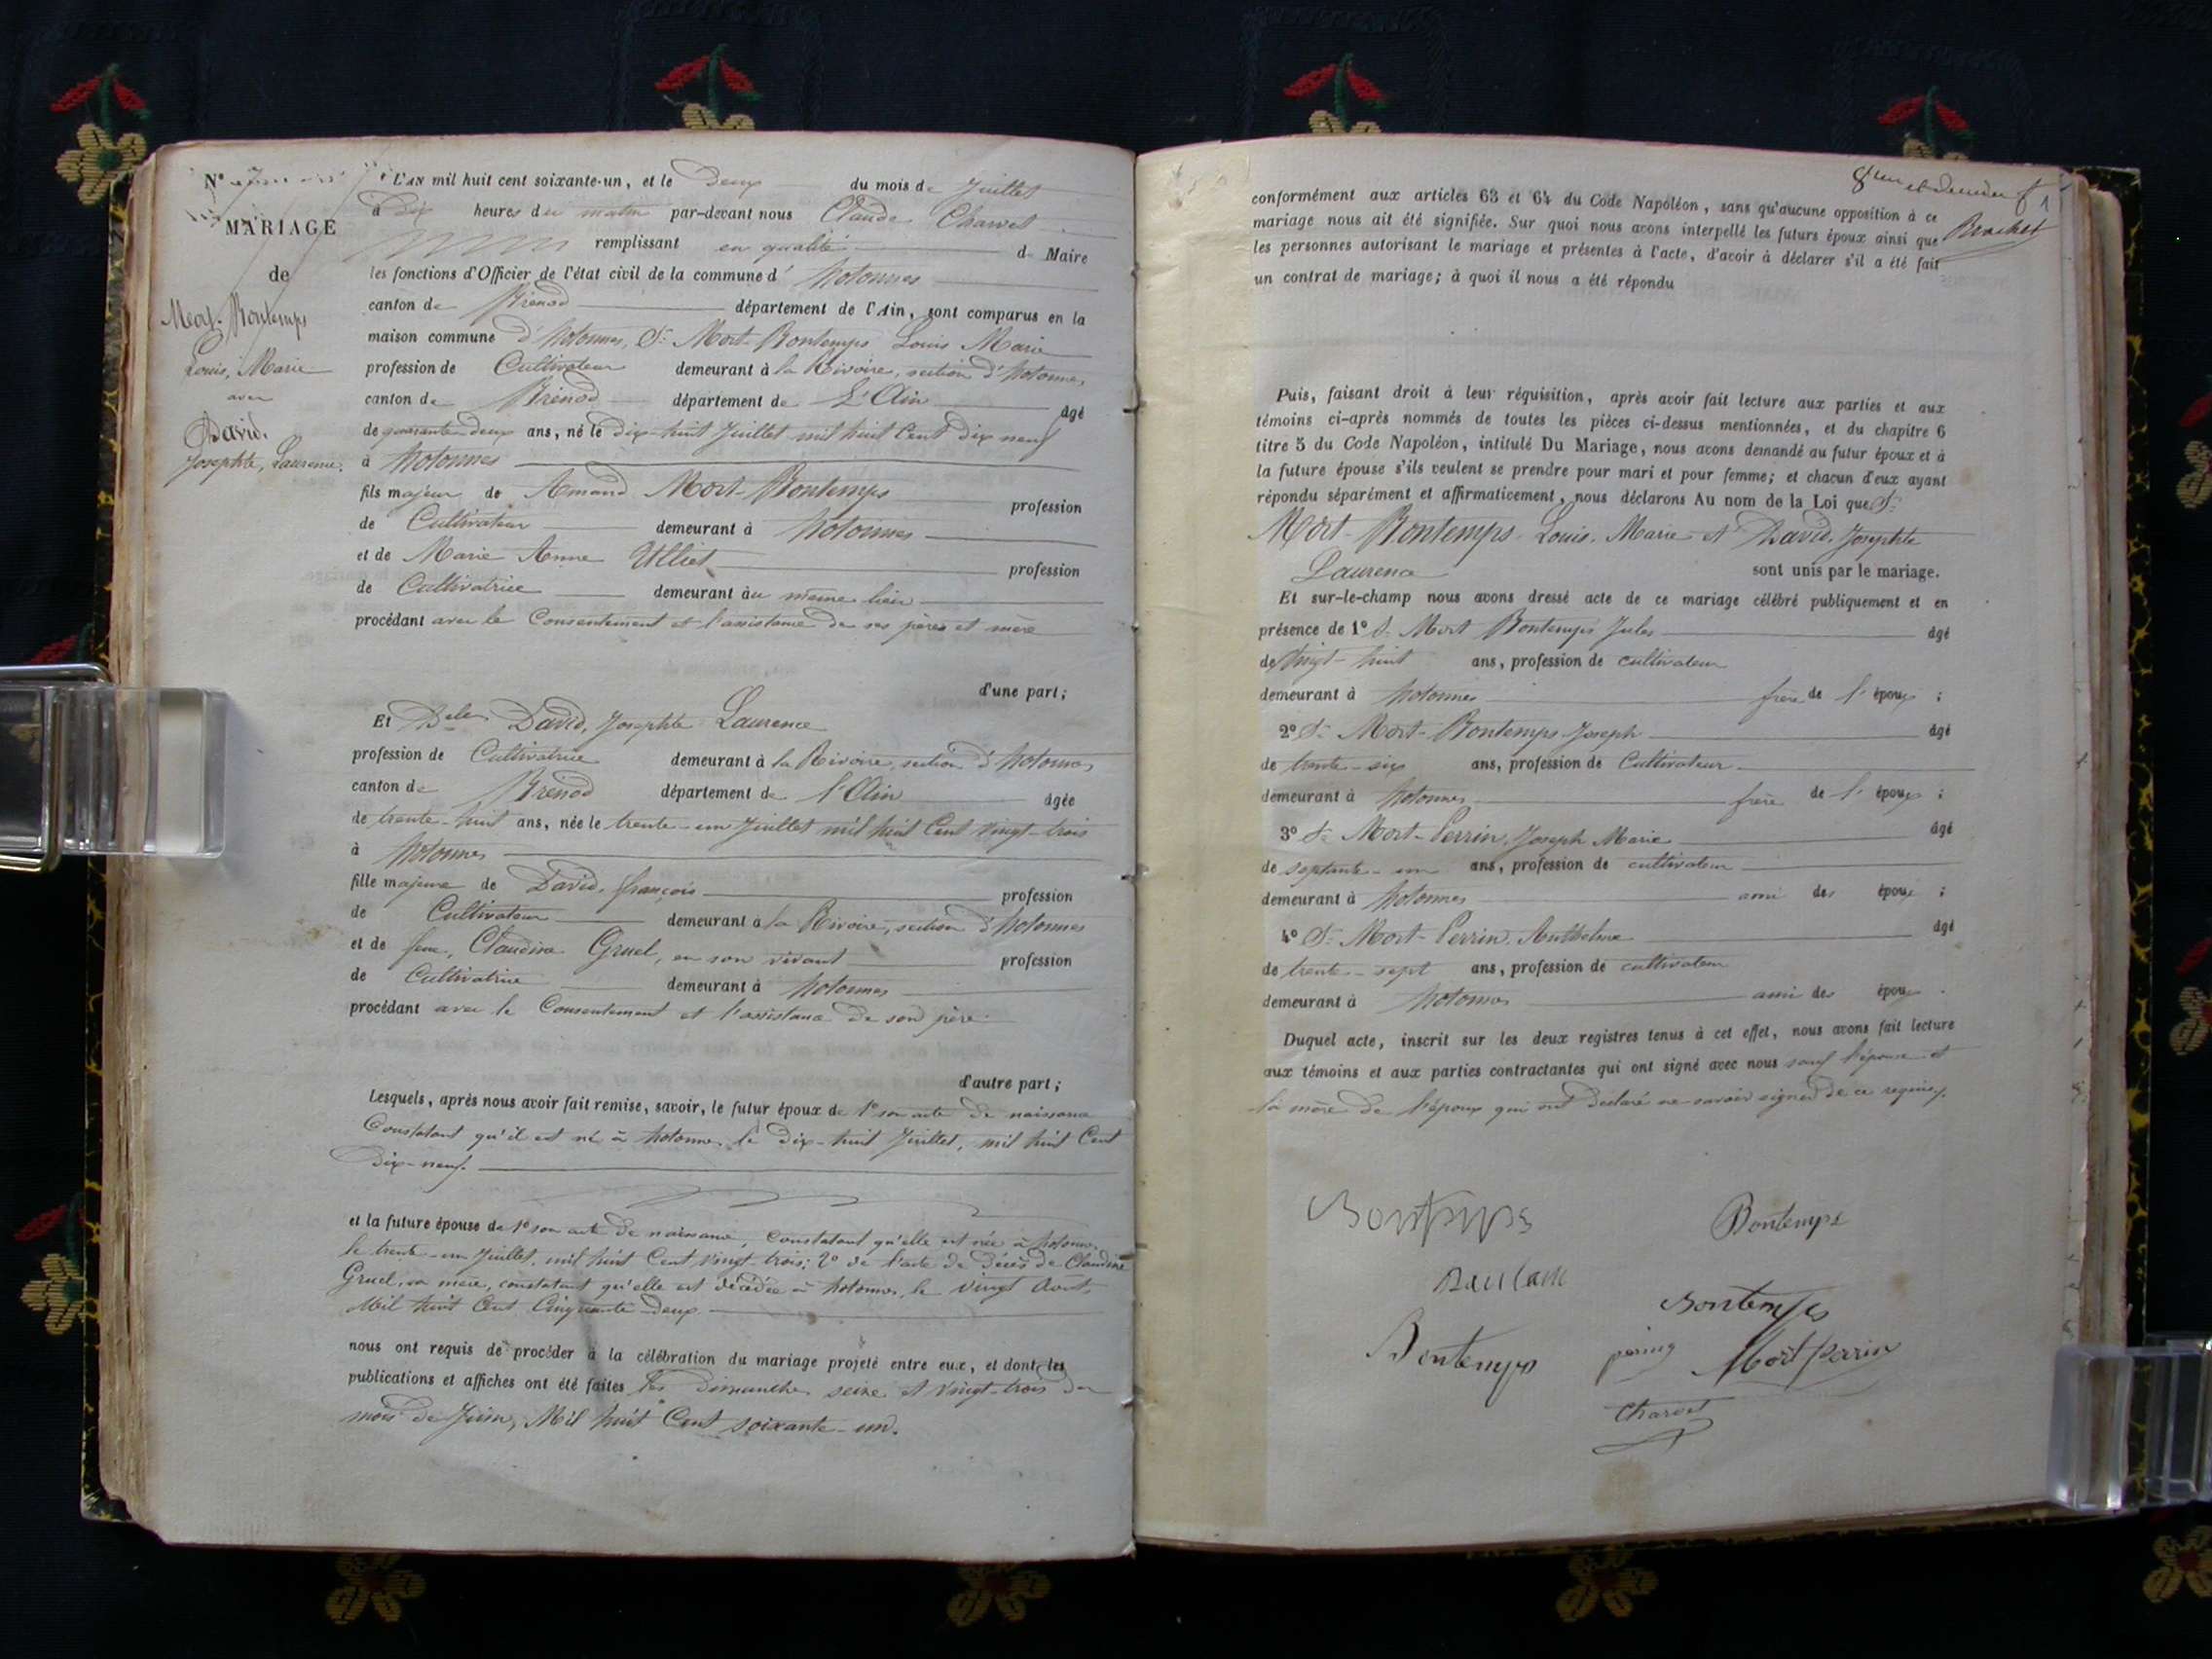 N°
MARIAGE
de
Mort-Bontemps
Louis, Marie
avec
David,
Josephte, Laurence.
L'AN mil huit cent soixante-un, et le Deux du mois de Juillet
à Dix heures du matin par-devant nous Claude Charvet
remplissant en qualité de Maire
les fonctions d'Officier de l'état civil de la commune d' hotonnes
canton de Brenod département de l'Ain, sont comparus en la
maison commune d'hotonnes, Sr. Mort-Bontemps Louis Marie
profession de Cultivateur demeurant à la Rivoire, section d'hotonnes
canton de Brenod département de L'Ain âgé
de quarante-deux ans, né le dix-huit Juillet mil huit Cent dix neuf
à hotonnes
fils majeur de Amand Mort-Bontemps profession
de Cultivateur demeurant à hotonnes
et de Marie Anne Ulliet profession
de Cultivatrice demeurant au même lieu
procédant avec le Consentement et l'assistance de ses pères et mère
d'une part;
Et Delle David, Josephte Laurence
profession de Cultivatrice demeurant à la Rivoire, section d'hotonnes
canton de Brenod département de l'Ain âgée
de trente-huit ans, née le trente-un Juillet mil huit Cent vingt-trois
à hotonnes
fille majeure de David, françois profession
de Cultivateur demeurant à la Rivoire, section d'hotonnes
et de feue, Claudine Gruel, en son vivant profession
de Cultivatrice demeurant à hotonnes
procédant avec le Consentement et l'assistance de son père
d'autre part;
Lesquels, après nous avoir fait remise, savoir, le futur époux de 1° son acte de naissance
Constatant qu'il est né à hotonnes le dix-huit Juillet, mil huit Cent
Dix-neuf.
et la future épouse de 1° son acte de naissance, constatant qu'elle est née à hotonnes
le trente-un Juillet, mil huit Cent vingt-trois; 2° de l'acte de décès de Claudine
Gruel, sa mère, constatant qu'elle est décédée à hotonnes, le vingt Août,
Mil huit Cent Cinquante-deux
nous ont requis de procéder à la célébration du mariage projeté entre eux, et dont les
publications et affiches ont été faites les dimanches seize et vingt-trois du
mois de Juin, Mil huit Cent soixante-un.
8eme et dernier f
Brachet
conformément aux articles 63 et 64 du Code Napoléon, sans qu'aucune opposition à ce
mariage nous ait été signifiée. Sur quoi nous avons interpellé les futurs époux ainsi que
les personnes autorisant le mariage et présentes à l'acte, d'avoir à déclarer s'il a été fait
un contrat de mariage; à quoi il nous a été répondu
Puis, faisant droit à leur réquisition, après avoir fait lecture aux parties et aux
témoins ci-après nommés de toutes les pièces ci-dessus mentionnées, et du chapitre 6
titre 5 du Code Napoléon, intitulé Du Mariage, nous avons demandé au futur époux et à
la future épouse s'ils veulent se prendre pour mari et pour femme; et chacun d'eux ayant
répondu séparément et affirmativement, nous déclarons Au nom de la Loi que Sr.
Mort-Bontemps Louis. Marie et David. Josephte
Laurence sont unis par le mariage.
Et sur-le-champ nous avons dressé acte de ce mariage célébré publiquement et en
présence de 1° Sr. Mort Bontemps Jules âgé
de vingt-huit ans, profession de cultivateur
demeurant à hotonnes frère de l' époux ;
2° Sr. Mort-Bontemps Joseph âgé
de trente-six ans, profession de Cultivateur
demeurant à hotonnes frère de l' époux ;
3° Sr. Mort-Perrin, Joseph Marie âgé
de septante-un ans, profession de cultivateur
demeurant à hotonnes ami des époux ;
4° Sr. Mort-Perrin. Anthelme âgé
de trente-sept ans, profession de cultivateur
demeurant à hotonnes ami des époux .
Duquel acte, inscrit sur les deux registres tenus à cet effet, nous avons fait lecture
aux témoins et aux parties contractantes qui ont signé avec nous sauf l'épouse et
la mère de l'époux qui ont déclaré ne savoir signer de ce requis.
Bontemps
Bontemps
Bontemps
Bontemps
Mort perrin
Charvet